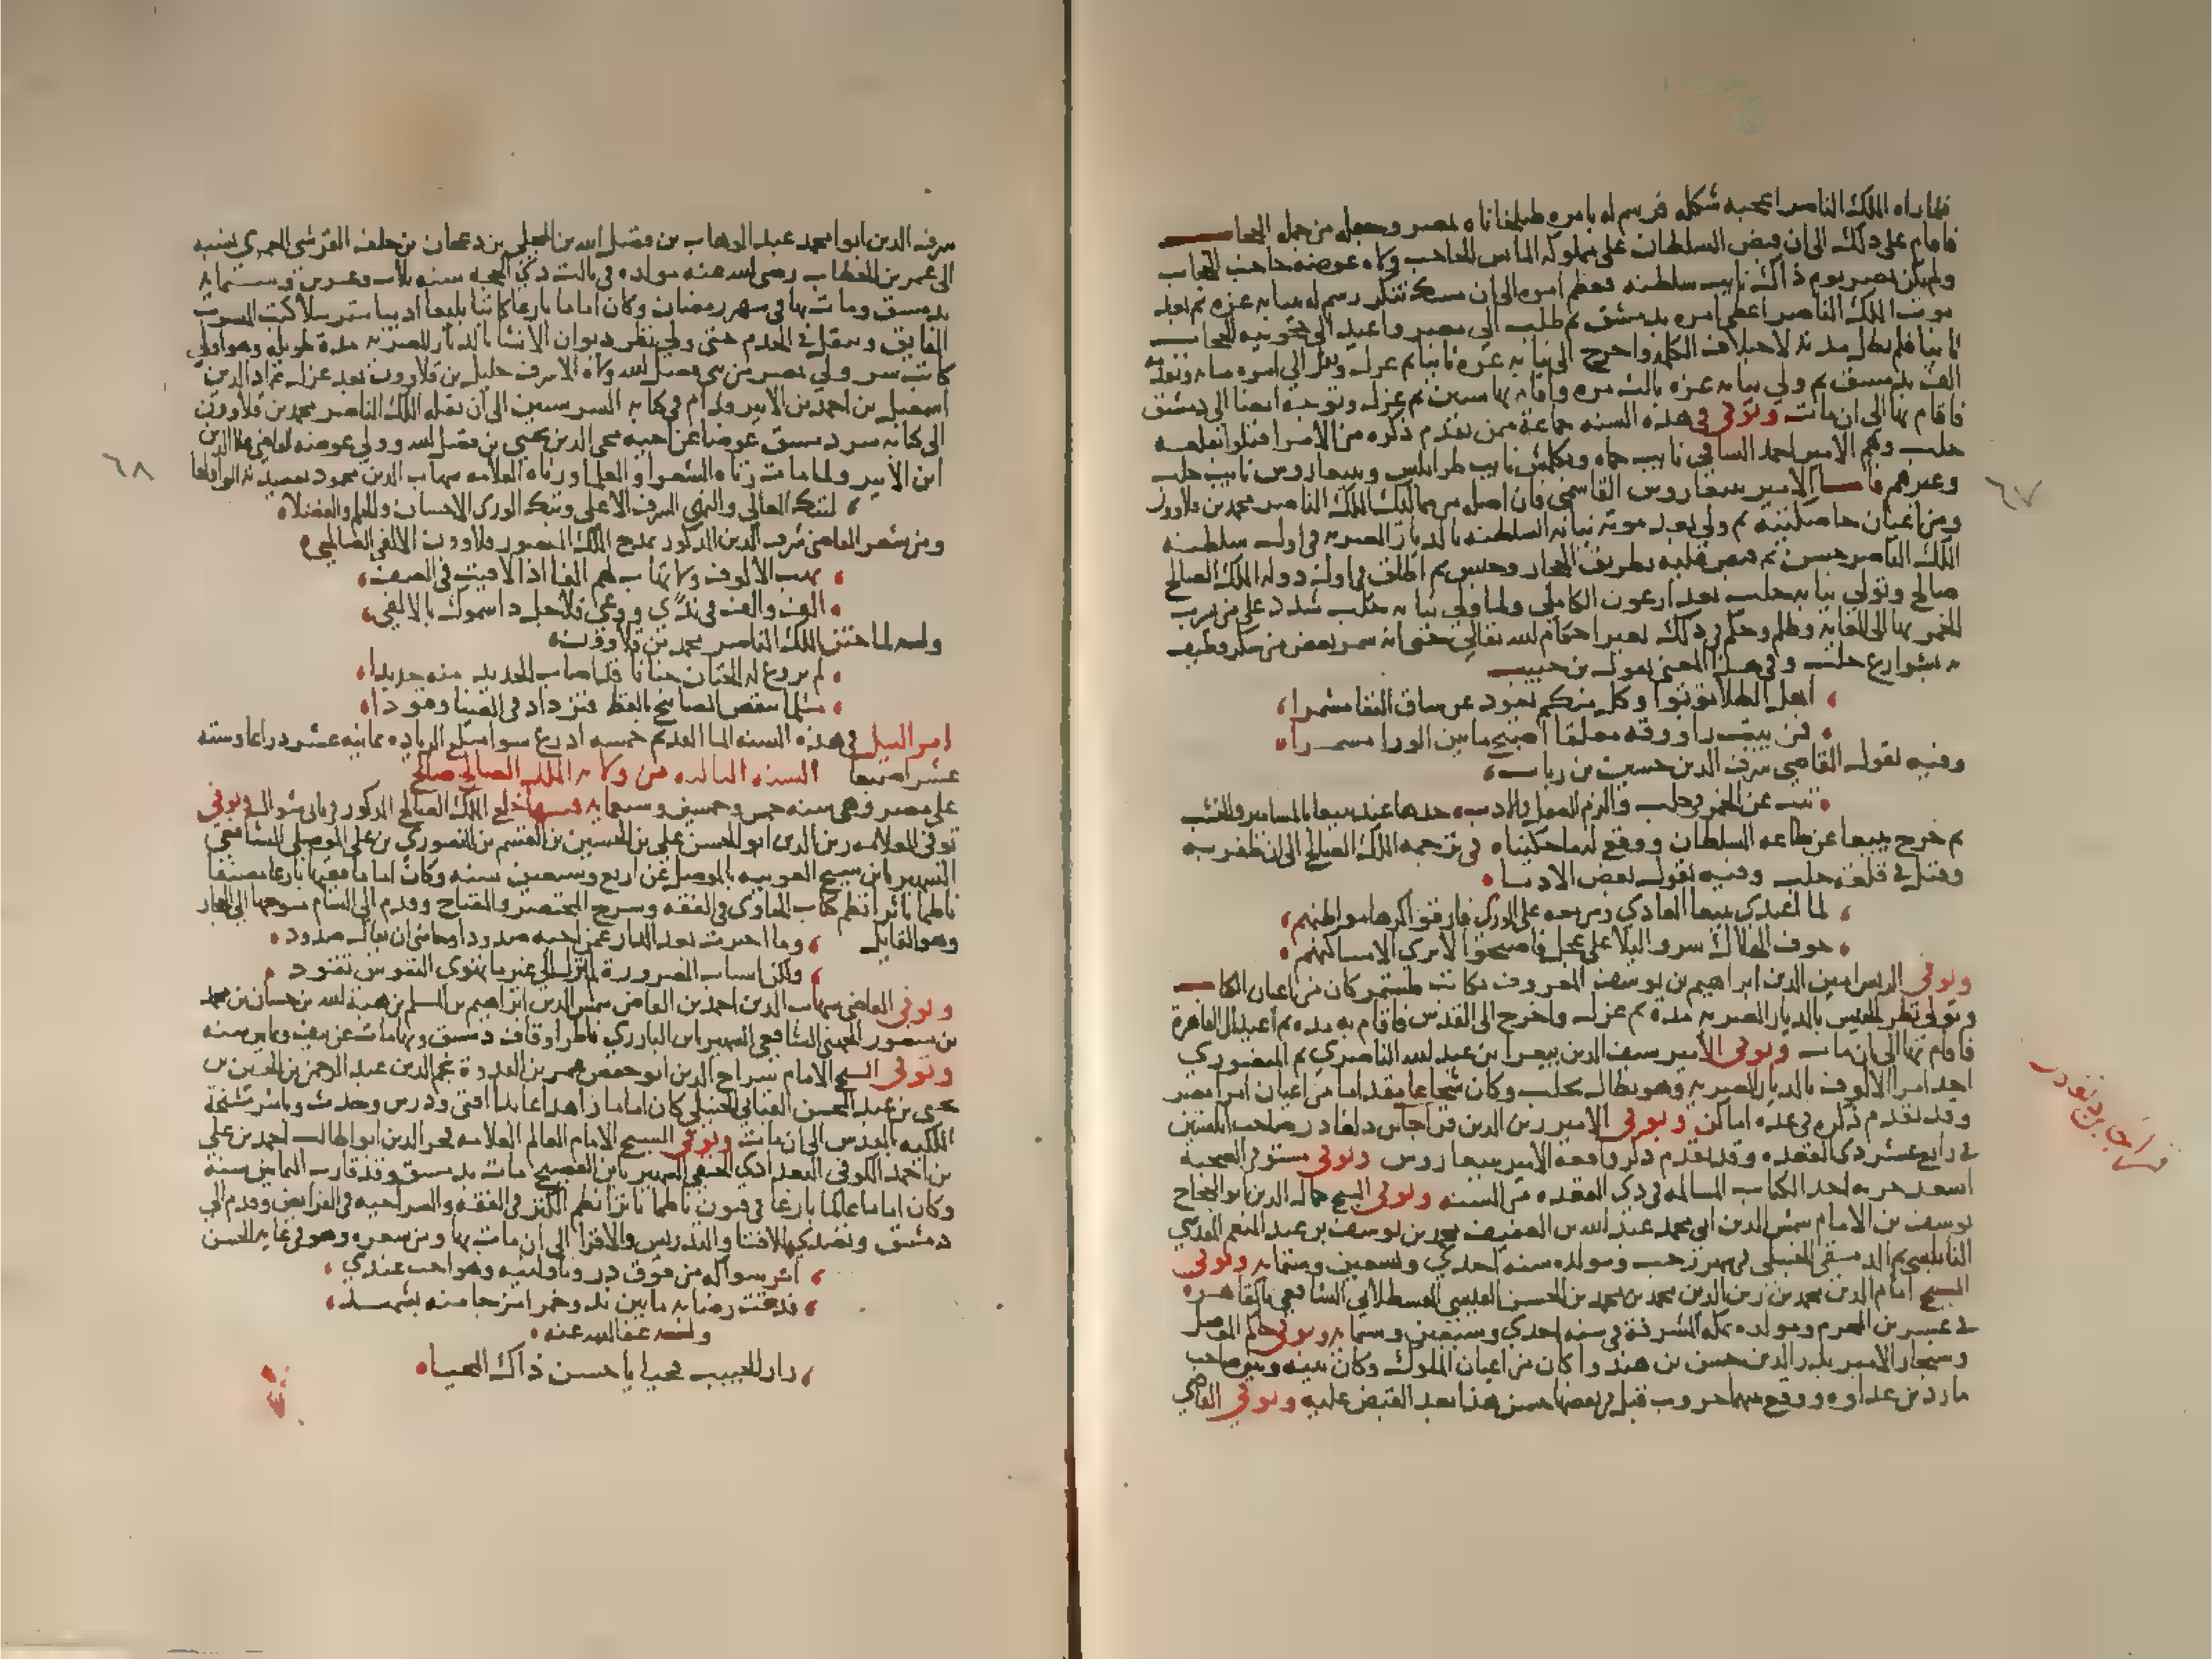 فلما راه الملك الناصر اعجبه شكله فرسم له بامره طبلخاناه بمصر وجعله من جمله الحجاب
فاقام على ذلك الى ان قبض السلطان على مملوكه الماس الحاجب ولاه عوضه حاجب الحجاب
ولم يكن بمصر يوم ذاك نايب سلطنه فعظم امره الى ان مسك تنكز رسم له بنيابه غزه ثم بعد
موت الملك الناصر اعطي امره بدمشق ثم طلب الى مصر واعيد الى حجوبيه الحجاب
ثانيا فلم تطل مدته لاختلاف الكلمه واخرج الى نيابه غزه ثانيا ثم عزل ونقل الى امره مايه وتقدمه
الف بدمشق ثم ولي نيابه غزه ثالث مره واقام بها سنين ثم عزل وتوجه ايضا الى دمشق
فاقام بها الى ان مات وتوفي في هذه السنه جماعة ممن تقدم ذكره من الامرا قتلوا بقلعه
حلب وهم الامير احمد الساقي نايب حماه وبكلمش نايب طرابلس وبيبغاروس نايب حلب
وغيرهم فاما الامير بيبغاروس القاسمي فان اصله من مماليك الملك الناصر محمد بن قلاوون
ومن اعيان خاصكيته ثم ولي بعد موته نيابه السلطنه بالديار المصريه في اول سلطنه
الملك الناصر حسن ثم قبض عليه بطريق الحجاز وحبس ثم اطلق في اول دوله الملك الصالح
صالح وتولى نيابه حلب بعد ارغون الكاملي ولما ولي نيابه حلب شدد على من يشرب
الخمر بها الى الغايه وظلم وحكم في ذلك بغير احكام الله تعالى حتى انه سمر بعض من سكر وطيف
به بشوارع حلب وفي هذا المعنى يقول بن حبيب
اهل الطلا توبوا وكل منكم يعود عن ساق التقا مشمرا
فمن يبت راووقه معلقا اصبح ما بين الورا مسمرا
وفيه يقول القاضي شرف الدين حسين بن ريان
تب عن الخمر في حلب والزم العقل والادب حدها عند بيبغا بالمسامير والخشب
ثم خرج بيبغا عن طاعه السلطان ووقع له ما حكيناه في ترجمه الملك الصالح الى ان ظفر به
وقتل في قلعة حلب وفيه يقول بعض الادبا
لما اعتدى بيبغا العادي ومن معه على الورى فارقوا كرها مواطنهم
خوف الهلاك سروا ليلا على عجل فاصبحوا لا يرى الا مساكنهم
وتوفي الريس امين الدين ابراهيم بن يوسف المعروف بكاتب طشتمر كان من اعيان الكتاب
وتولى نظر الجيش بالديار المصريه مدة ثم عزل واخرج الى القدس فاقام به مدة ثم اعيد الى القاهرة
فاقام بها الى ان مات وتوفي الامير سيف الدين بيغرا بن عبد الله الناصري ثم المنصوري
احد امرا الالوف بالديار المصريه وهو بطال بحلب وكان شجاعا مقداما من اعيان امرا مصر
وقد تقدم ذكره في عده اماكن وتوفي الامير زين الدين قراجا بن دلغادر صاحب ابلستين
في رابع عشر ذي القعده وقد تقدم ذكر واقعه الامير بيبغا روس وتوفي مستوفي الصحبه
اسعد حربه احد الكتاب المسالمه في ذي القعده من السنه وتوفي الشيخ جمال الدين ابو الحجاج
يوسف بن الامام شمس الدين ابي محمد عبد الله بن العفيف محمد بن يوسف بن عبد المنعم المقدسي
النابلسي ثم الدمشقي الحنبلي في شهر رجب ومولده سنه احدى وتسعين وستمايه وتوفي
الشيخ امام الدين محمد بن زين الدين محمد بن محمد بن الحسن القيسي القسطلاني الشافعي بالقاهره
في عشر بن المحرم ومولده بمكه المشرفة في سنه احدى وسبعين وستمايه وتوفي حاكم الموصل
وسنجار الامير بدر الدين حسن بن هندوا كان من اعيان الملوك وكان بينه وبين صاحب
ماردين عداوه ووقع بينهما حروب قتل في بعضها حسن هذا بعد القبض عليه وتوفي القاضي
٦٧
قراجا بن دلغادر
شرف الدين ابوا محمد عبد الوهاب بن فضل الله بن المجلي بن دعجان بن خلف القرشي العمري نسبه
الى عمر بن الخطاب رضي الله عنه مولده في ثالث ذي الحجه سنه ثلاث وعشرين وستمايه
بدمشق ومات بها في شهر رمضان وكان اماما بارعا كاتبا بليغا اديبا مترسلا كتب المنسوب
الفايق وتنقل في الخدم حتى ولي نظر ديوان الانشا بالديار المصريه مدة طويله وهو اول
كاتب سر ولي بمصر من بني فضل الله ولاه الاشرف خليل بن قلاوون بعد عزل عماد الدين
اسمعيل بن احمد بن الاثير ودام في كتابه السر سنين الى ان نقله الملك الناصر محمد بن قلاوون
الى كتابه سر دمشق عوضا عن اخيه محي الدين يحيى بن فضل الله وولي عوضه القاضي علا الدين
ابن الاثير ولما مات رثاه الشعرا والعلما ورثاه العلامه شهاب الدين محمود بقصيدته التي اولها
لتبك المعالي والنهى الشرف الاعلى وتبك الورى الاحسان والحلم والفضلا
ومن شعر القاضي شرف الدين المذكور يمدح الملك المنصور قلاوون الالفي الصالحي
تهب الالوف ولا تهاب لهم الفا اذا لاقيت في الصف
الف والف في ندى ووغى فلاجل ذا سموك بالالفي
وله لما ختن الملك الناصر محمد بن قلاوون
لم يروع له الختان جنانا قد اصاب الحديد منه حديدا
مثلما تنقص المصابيح بالقط فتزداد في الضيا وقودا
امر النيل في هذه السنه الما القديم خمسه اذرع سوا مبلغ الزياده ثمانيه عشر دراعا وسته
عشر اصبعا السنه الثالثه من ولايه الملك الصالح صالح
على مصر وهي سنه خمس وخمسين وسبعمايه فيها خلع الملك الصالح المذكور في ثاني شوال وتوفي
توفي العلامه زين الدين ابو الحسن علي بن الحسين بن القسم بن المنصوري بن علي الموصلي الشافعي
الشهير بابن شيخ العوينيه بالموصل عن اربع وسبعين سنه وكان اماما فقيها بارعا مصنفا
ناظما ناثرا نظم كتاب الحاوي في الفقه وشرح المختصر والمفتاح وقدم الى الشام متوجها الى الحجاز
وهو القايل وما اخترت بعد الدار عمن احبه صدودا وحاشى ان يقال صدود
ولكن اسباب الضرورة لم تزل الى غير ما تهوى النفوس تقود
وتوفي القاضي شهاب الدين احمد بن القاضي شمس الدين ابراهيم بن المسلم بن هبة الله بن حسان بن محمد
بن منصور الجهني الشافعي الشهير بابن البارزي ناظر اوقاف دمشق وبها مات عن نيف وثمانين سنه
وتوفي الشيخ الامام سراج الدين ابو حفص عمر بن القدوة نجم الدين عبد الرحمن بن الحسين بن
يحيى بن عبد المحسن القبابي الحنبلي كان اماما زاهدا عابدا افتى ودرس وحدث وباشر مشيخة
المالكيه بالقدس الى ان مات وتوفي الشيخ الامام العالم العلامه فخر الدين ابو طالب احمد بن علي
بن احمد الكوفي البغدادي الحنفي الشهير بابن الفصيح مات بدمشق وقد قارب الثمانين سنة
وكان اماما عالما بارعا في فنون ناظما ناثرا نظم الكنز في الفقه والسراجيه في الفرايض وقدم الى
دمشق وتصدى بها للافتا والتدريس والاقرا الى ان مات بها ومن شعره وهو في غايه الحسن
امر سواكه من فوق در وناولنيه وهو احب عندي
فذقت رضابه ما بين ند وخمر امتزجا منه بشهد
وله عفا الله عنه
زار الحبيب محيا يا حسن ذاك المحيا
٦٨